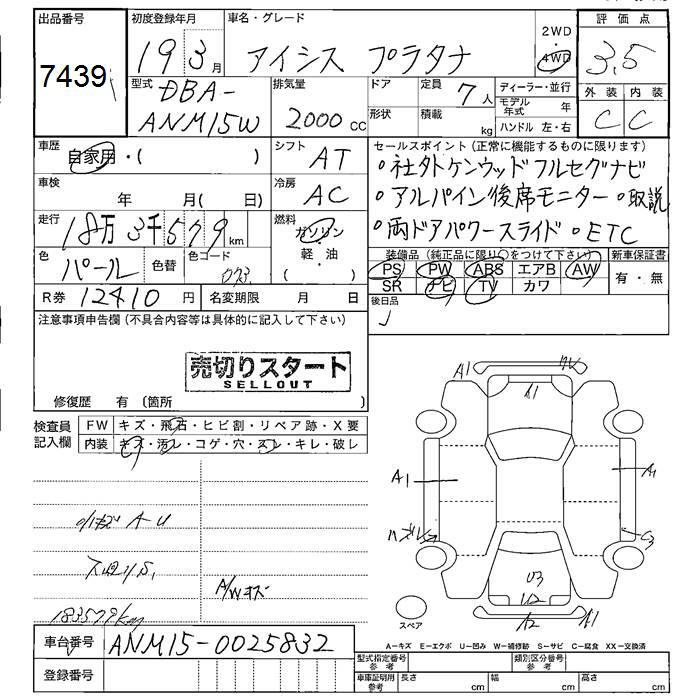 出品番号 初度登録年月 車名・グレード 2WD 評価点
7439 19 3月 アイシス プラタナ 4WD 3.5
型式 排気量 ドア 定員 ディーラー・並行 外装 内装
DBA- 7人 モデル年式 年
ANM15W 2000cc 形状 積載 kg ハンドル 左・右 C C
車歴 シフト セールスポイント(正常に機能するものに限ります)
自家用・( ) AT ・社外ケンウッドフルセグナビ
車検 冷房 ・アルパイン後席モニター ・取説
年 月(日) AC ・両ドアパワースライド ・ETC
走行 18万3千579km 燃料 ガソリン
軽・油
( )
色 パール 色替 色コード 073
装備品(純正品に限り○をつけて下さい) 新車保証書
PS PW ABS エアB AW 有・無
SR ナビ TV カワ
R券 12410円 名変期限 月 日 後日品
注意事項申告欄(不具合内容等は具体的に記入して下さい)
売切りスタート
SELLOUT
修復歴 有(箇所 )
検査員記入欄 FW キズ・飛石・ヒビ割・リペア跡・X要
内装 キズ・汚レ・コゲ・穴・スレ・キレ・破レ
A-U
A/Wキズ
183579km
A1 A1
A1 A1
U3
A2 A1
スペア
A-キズ E-エクボ U-凹み W-補修跡 S-サビ C-腐食 XX-交換済
車台番号 ANM15-0025832
型式指定番号 参考 類別区分番号 参考
登録番号 車庫証明用 参考 長さ cm 幅 cm 高さ cm